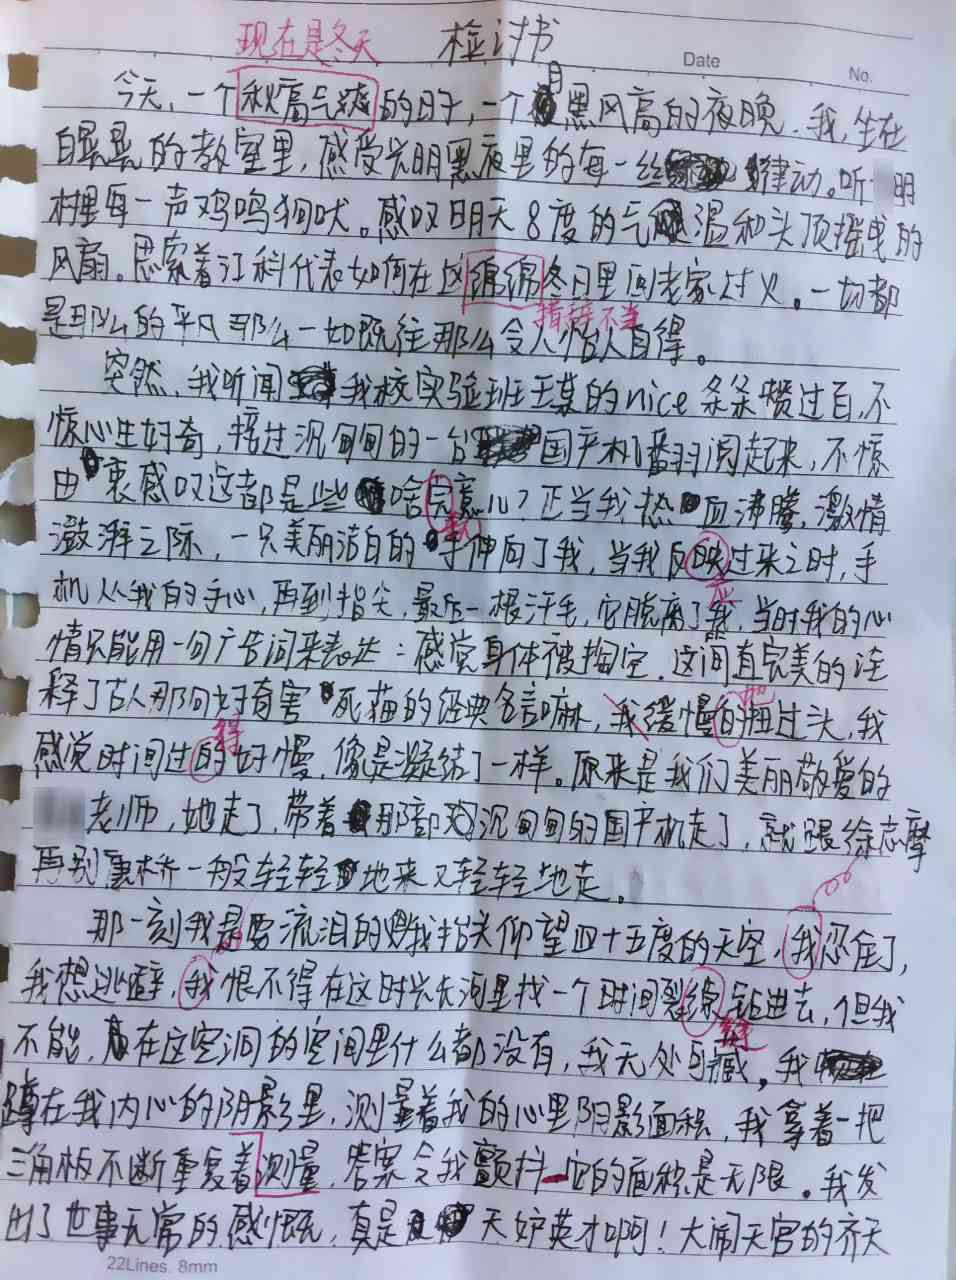 现在是冬天 检讨书
Date
No.
今天,一个秋高气爽的日子,一个月黑风高的夜晚.我,坐在
白晃晃的教室里,感受光明黑夜里的每一丝律动。听 明
村里每一声鸡鸣狗吠。感叹明天8度的气温和头顶摇曳的
风扇。思索着江科代表如何在这绵绵冬日里回老家过火。一切都
措辞不当
是那么的平凡那么一如既往那么令人怡人自得。
突然,我听闻我校实验班王某的nice条条攒过百,不
惊心生好奇,接过沉甸甸的一台国产机翻阅起来,不惊
由衷感叹这都是些啥完意儿?正当我热血沸腾,激情
澎湃之际,一只美丽洁白的手伸向了我,当我反映过来之时,手
应
机从我的手心,再到指尖,最后一根汗毛,它脱离了我,当时我的心
情只能用一句广告词来表达:感觉身体被掏空.这简直完美的诠
释了古人那句好奇害死猫的经典名言嘛,我缓慢的扭过头,我
地
得
感觉时间过的好慢,像是凝结了一样。原来是我们美丽敬爱的
老师,她走了,带着那部沉甸甸的国产机走了,就跟徐志摩
再别康桥一般轻轻地来又轻轻地走。
那一刻我是要流泪的 我抬头仰望四十五度的天空,我忍住了,
我想逃避,我恨不得在这时光长河里找一个时间裂缘钻进去,但我
缝
不能,在这空洞的空间里什么都没有,我无处可藏,我
蹲在我内心的阴影里,测量着我的心里阴影面积,我拿着一把
三角板不断重复着测量,答案令我颤抖 它的面积是无限。我发
出了世事无常的感慨,真是天妒英才啊!大闹天宫的齐天
22Lines. 8mm